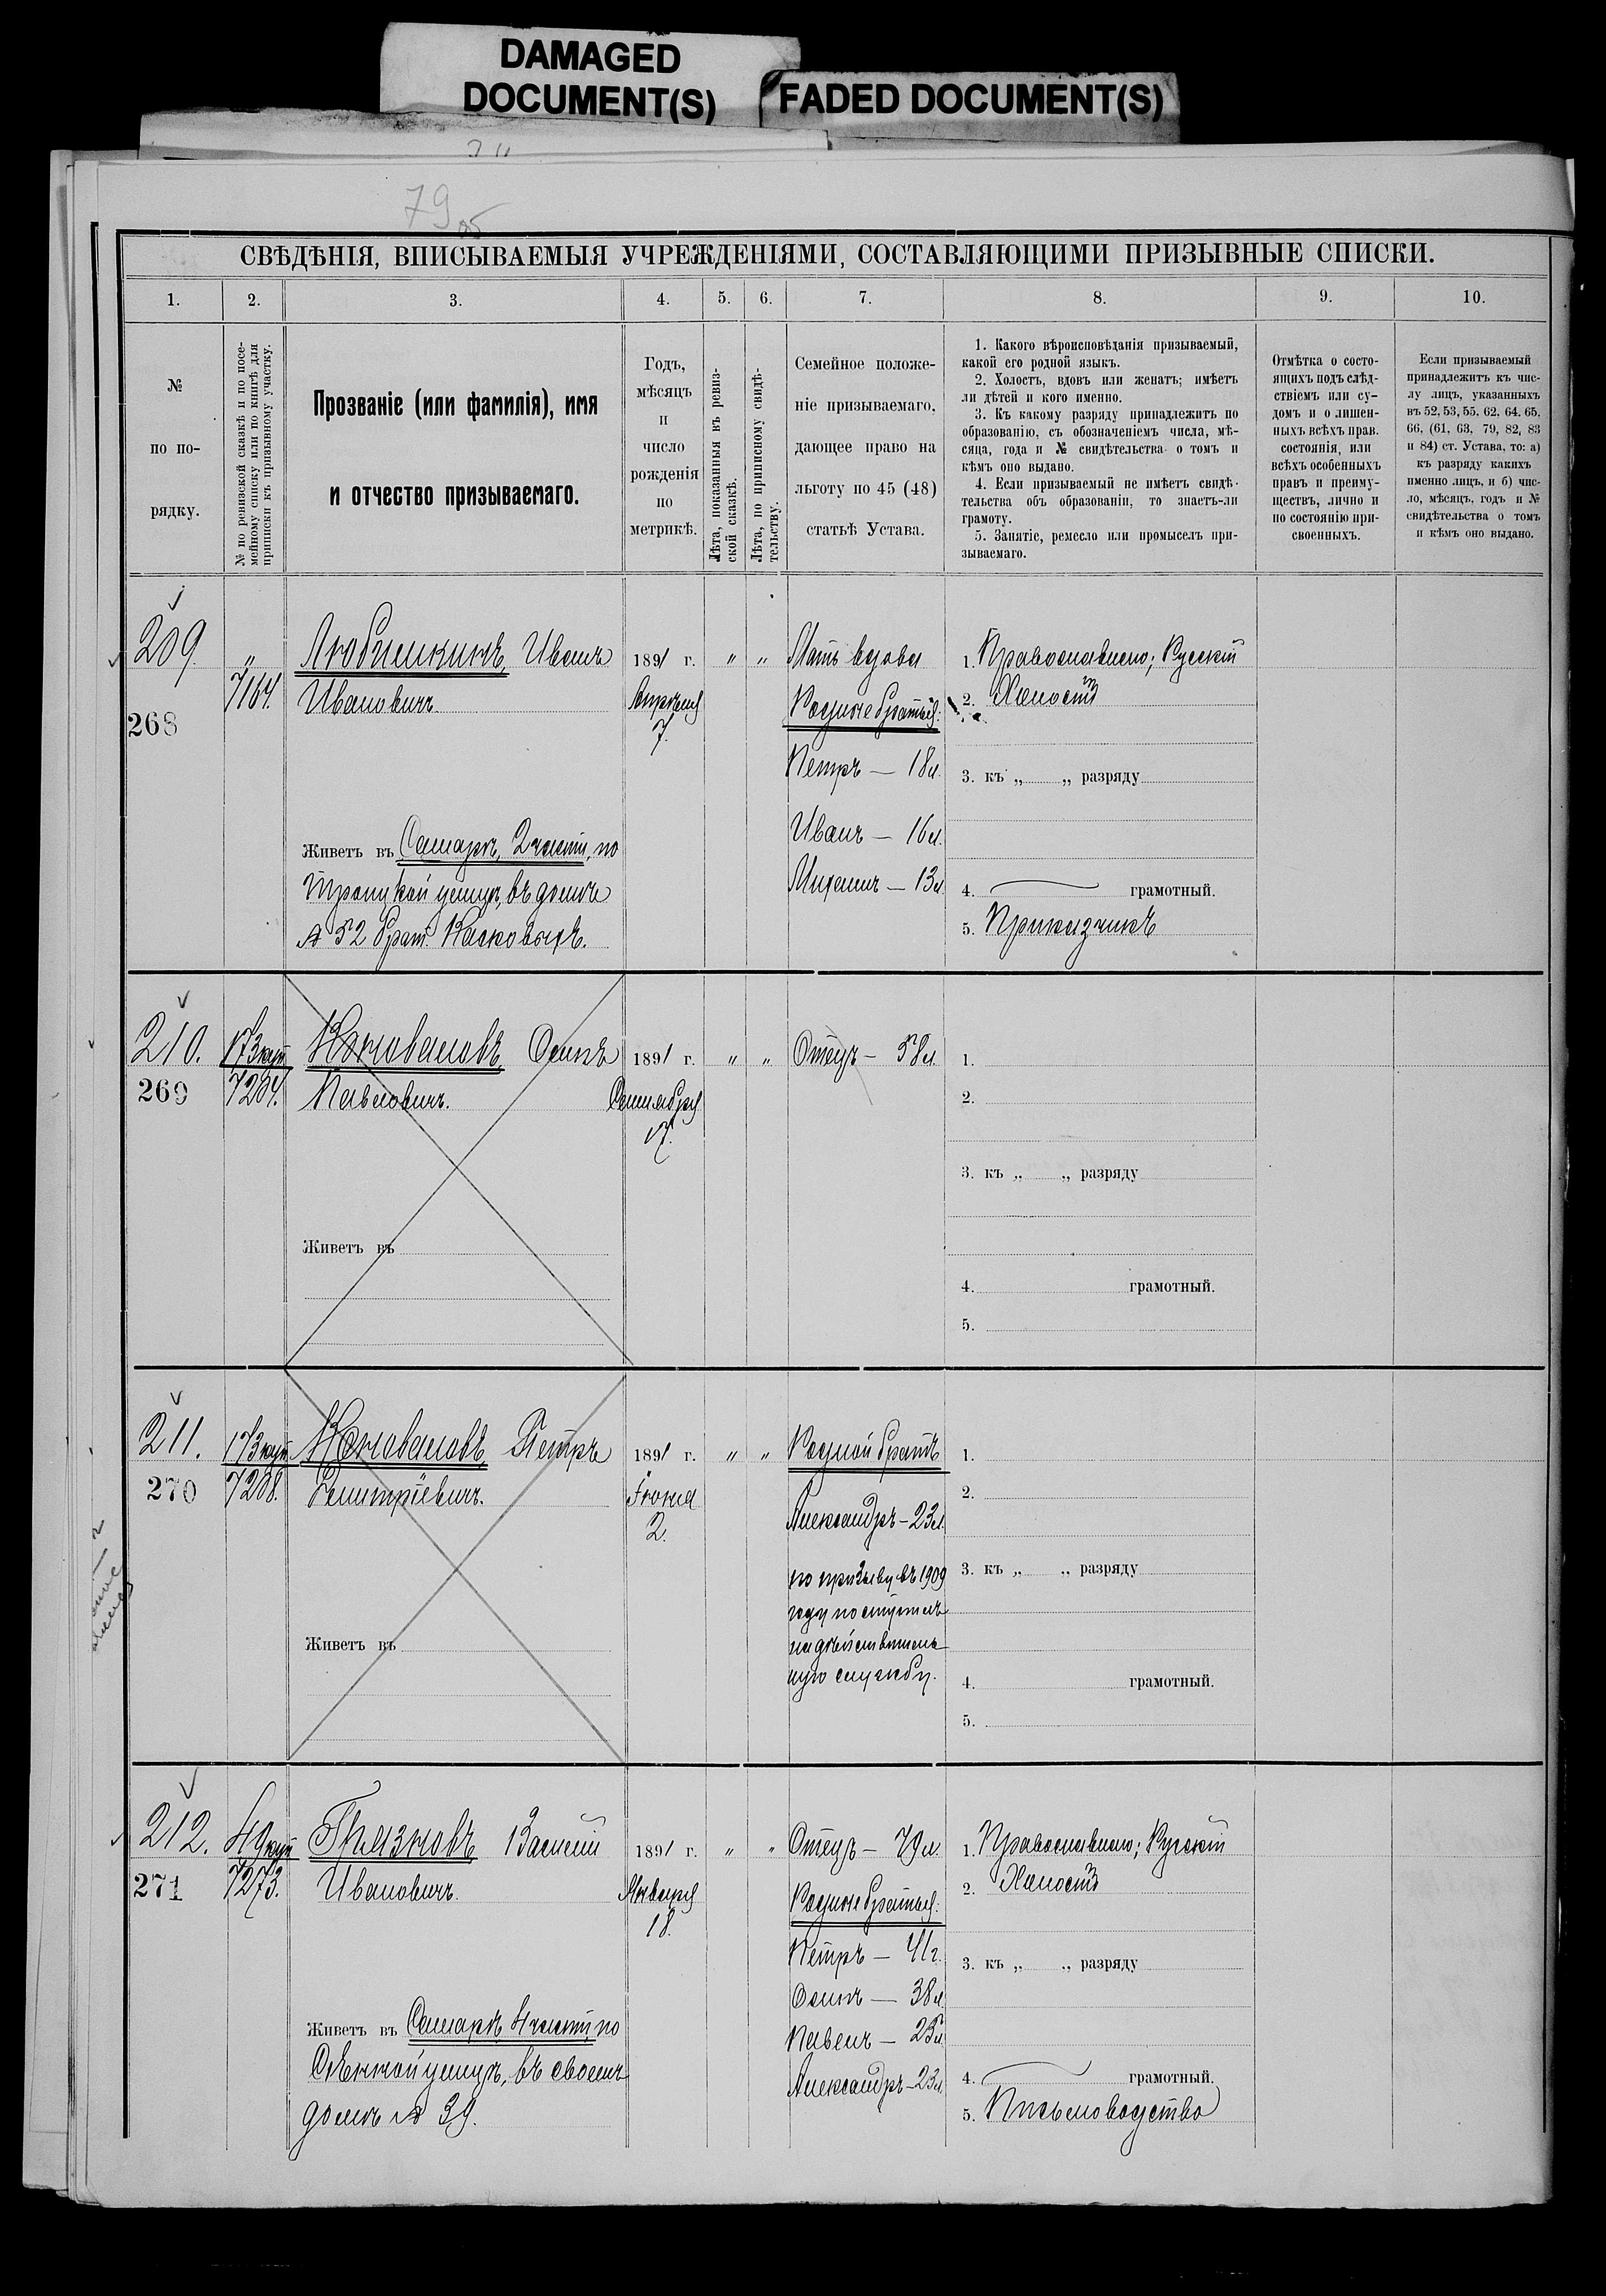 DAMAGED
DOCUMENT(S)
FADED DOCUMENT(S)
79 об
СВѢДѢНІЯ, ВПИСЫВАЕМЫЯ УЧРЕЖДЕНІЯМИ, СОСТАВЛЯЮЩИМИ ПРИЗЫВНЫЕ СПИСКИ.
1.
2.
3.
4.
5.
6.
7.
8.
9.
10.
№
по по-
рядку.
№ по ревизской сказкѣ и по посе-
мейному списку или по книгѣ для
приписки къ призывному участку.
Прозваніе (или фамилія), имя
и отчество призываемаго.
Годъ,
мѣсяцъ
и
число
рожденія
по
метрикѣ.
Лѣта, показанныя въ ревиз-
ской сказкѣ.
Лѣта, по приписному свидѣ-
тельству.
Семейное положе-
ніе призываемаго,
дающее право на
льготу по 45 (48)
статьѣ Устава.
1. Какого вѣроисповѣданія призываемый,
какой его родной языкъ.
2. Холостъ, вдовъ или женатъ; имѣетъ
ли дѣтей и кого именно.
3. Къ какому разряду принадлежитъ по
образованію, съ обозначеніемъ числа, мѣ-
сяца, года и № свидѣтельства о томъ и
кѣмъ оно выдано.
4. Если призываемый не имѣетъ свидѣ-
тельства объ образованіи, то знаетъ-ли
грамоту.
5. Занятіе, ремесло или промыселъ при-
зываемаго.
Отмѣтка о состо-
ящихъ подъ слѣд-
ствіемъ или су-
домъ и о лишен-
ныхъ всѣхъ прав.
состоянія, или
всѣхъ особенныхъ
правъ и преиму-
ществъ, лично и
по состоянію при-
своенныхъ.
Если призываемый
принадлежитъ къ чис-
лу лицъ, указанныхъ
въ 52, 53, 55, 62, 64, 65,
66, (61, 63, 79, 82, 83
и 84) ст. Устава, то: а)
къ разряду какихъ
именно лицъ, и б) чис-
ло, мѣсяцъ, годъ и №
свидѣтельства о томъ
и кѣмъ оно выдано.
209.
268
"
7164.
Любишкинъ, Иванъ
Ивановичъ.
Живетъ въ Самарѣ, 2 части, по
Троицкой улицѣ, въ домѣ
№ 52 брат.
1891 г.
Апрѣля
7.
" "
Мать вдова
Родные братья:
Петръ — 18 л.
Иванъ — 16 л.
Михаилъ — 13 л.
1. Православное; Русскій
2. Холостъ
3. къ „ „ разряду
4. грамотный.
5. Приказчикъ
210.
269
173 куп
7204.
Коноваловъ, Осипъ
Павловичъ.
Живетъ въ
1891 г.
Сентября
17.
" "
Отецъ — 58 л.
1.
2.
3. къ „ „ разряду
4. грамотный.
5.
211.
270
173 куп
7208.
Коноваловъ, Петръ
Димитріевичъ.
Живетъ въ
1891 г.
Іюня
2.
" "
Родной братъ
Александръ — 23 л.
по призыву въ 1909
году поступилъ
на дѣйствитель
ную службу.
1.
2.
3. къ „ „ разряду
4. грамотный.
5.
212.
271
49 куп
7273.
Глазковъ Василій
Ивановичъ.
Живетъ въ Самарѣ 4 части, по
Сѣнной улицѣ, въ своемъ
домѣ № 39.
1891 г.
Января
18.
" "
Отецъ — 79 л.
Родные братья:
Петръ — 41 г.
Осипъ — 38 л.
Павелъ — 25 л.
Александръ — 23 л.
1. Православное; Русскій
2. Холостъ
3. къ „ „ разряду
4. грамотный.
5. Письмоводство